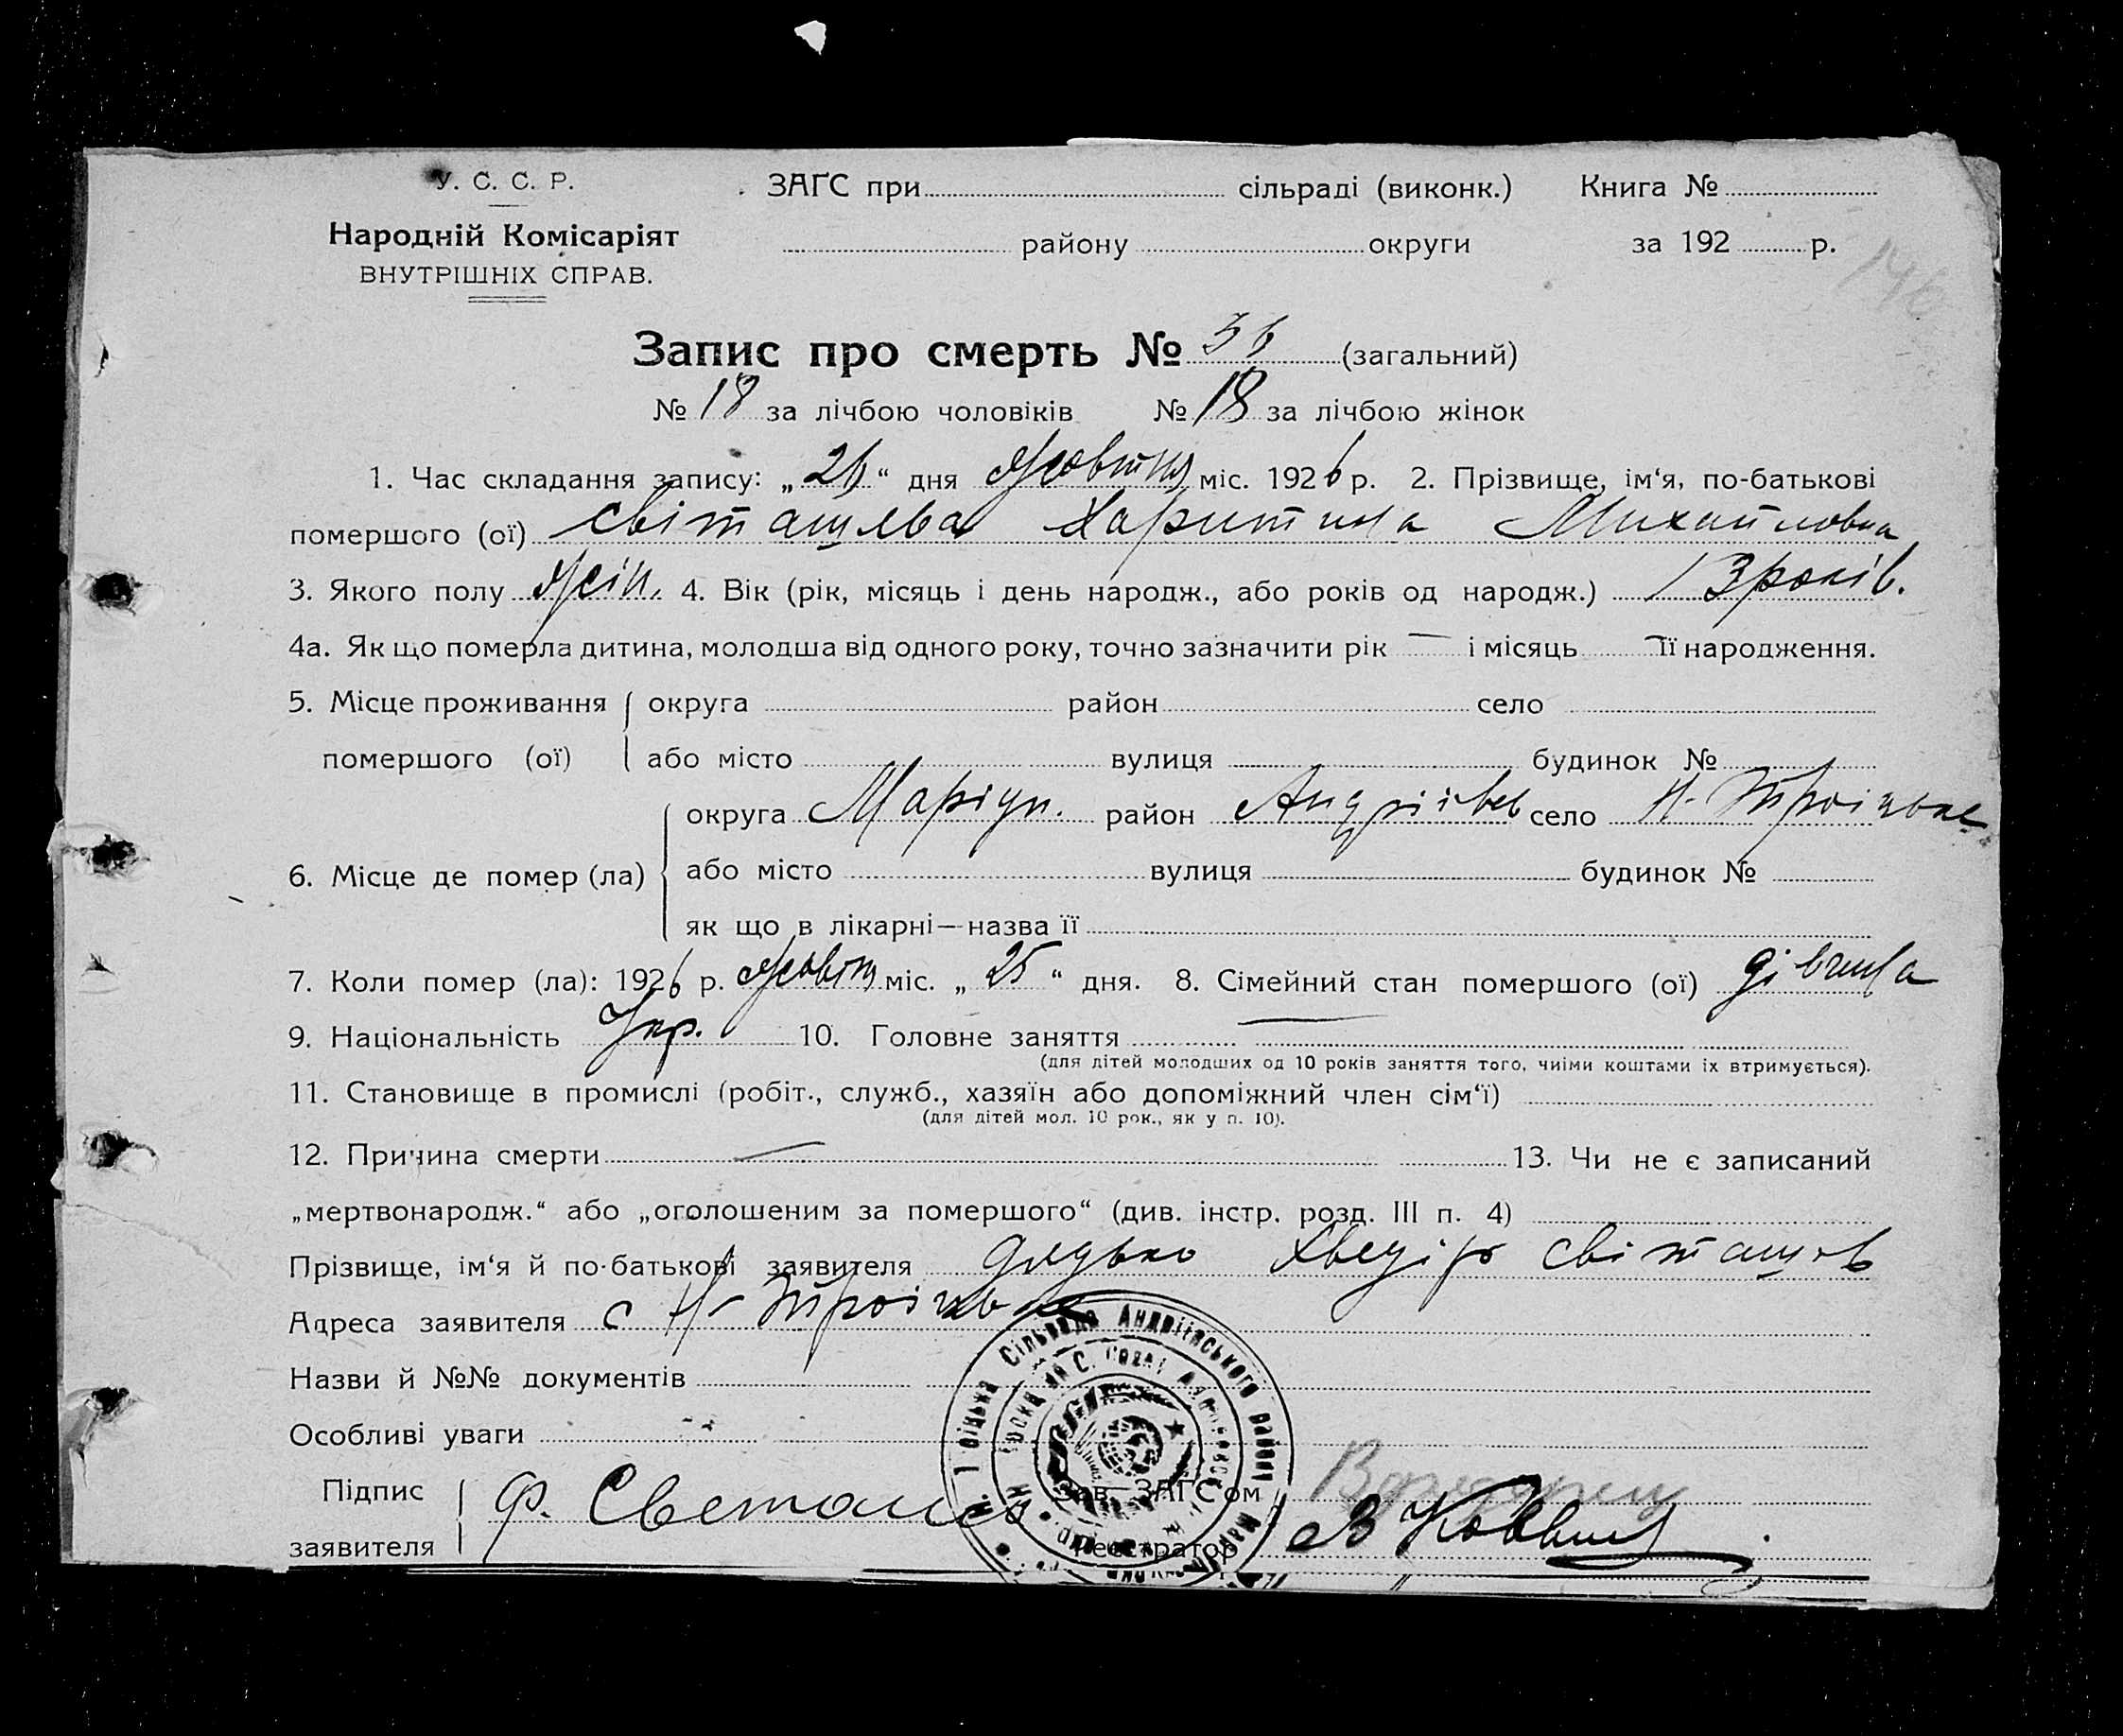 146
У. С. С. Р. ЗАҐС при сільраді (виконк.) Книга №
Народній Комісаріят району округи за 192 р.
ВНУТРІШНІХ СПРАВ.
Запис про смерть № 36 (загальний)
№ 18 за лічбою чоловіків № 18 за лічбою жінок
1. Час складання запису: „26“ дня Жовтня міс. 1926 р. 2. Прізвище, ім‘я, по-батькові
помершого (ої) Харитина Михайловна
3. Якого полу жін. 4. Вік (рік, місяць і день народж., або років од народж.) 13 років.
4а. Як що померла дитина, молодша від одного року, точно зазначити рік — і місяць — її народження.
5. Місце проживання округа район село
помершого (ої) або місто вулиця будинок №
округа Маріуп. район Андріївсь село Н-Троїцьке
6. Місце де помер (ла) або місто вулиця будинок №
як що в лікарні—назва її
7. Коли помер (ла): 1926 р. Жовтня міс. „25“ дня. 8. Сімейний стан помершого (ої) дівчина
9. Національність Укр. 10. Головне заняття —
(для дітей молодших од 10 років заняття того, чиїми коштами їх втримується).
11. Становище в промислі (робіт., служб., хазяїн або допоміжний член сім‘ї)
(для дітей мол. 10 рок., як у п. 10).
12. Причина смерти — 13. Чи не є записаний
„мертвонародж.“ або „оголошеним за помершого“ (див. інстр. розд. III п. 4)
Прізвище, ім‘я й по-батькові заявителя Дядько Хведір Світашов
Адреса заявителя с Н-Троїцьке
Назви й №№ документів
Особливі уваги
Підпис Ф. Зав. ЗАҐС‘ом
заявителя Реєстратор
Сільрада Андріївського району